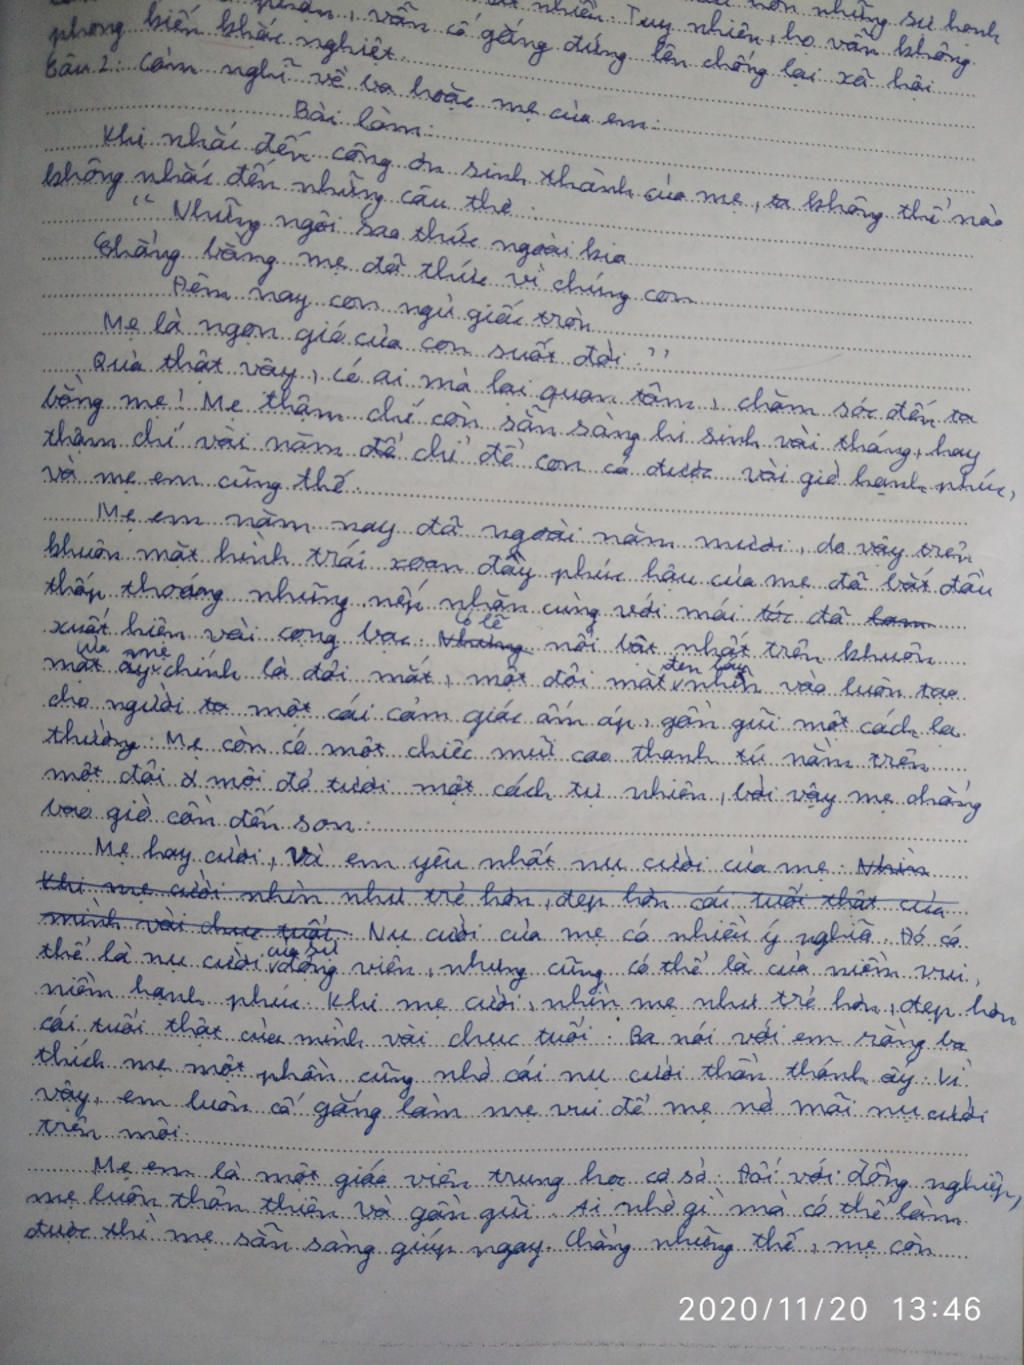 hơn những sự hanh
nhiên. Tuy nhiên, họ vẫn không
phong biến khắc nghiệt. vẫn cố gắng đứng lên chống lại xã hội
Câu 2: Cảm nghĩ về ba hoặc mẹ của em.
Bài làm:
Khi nhắc đến công ơn sinh thành của mẹ, ta không thể nào
không nhắc đến những câu thơ:
“ Những ngôi sao thức ngoài kia
Chẳng bằng mẹ đã thức vì chúng con
Đêm nay con ngủ giấc tròn
Mẹ là ngọn gió của con suốt đời.”
Quả thật vậy, có ai mà lại quan tâm, chăm sóc đến ta
bằng mẹ! Mẹ thậm chí còn sẵn sàng hi sinh vài tháng, hay
thậm chí vài năm để chỉ để con có được vài giờ hạnh phúc,
và mẹ em cũng thế.
Mẹ em năm nay đã ngoài năm mươi, do vậy trên
khuôn mặt hình trái xoan đầy phúc hậu của mẹ đã bắt đầu
thấp thoáng những nếp nhăn cùng với mái tóc đã lam
xuất hiện vài cọng bạc. Nhưng có lẽ nổi bật nhất trên khuôn
mặt ấy của mẹ chính là đôi mắt, một đôi mắt đen láy nhìn vào luôn tạo
cho người ta một cái cảm giác ấm áp, gần gũi một cách lạ
thường. Mẹ còn có một chiếc mũi cao thanh tú nằm trên
một đôi môi đỏ tươi một cách tự nhiên, bởi vậy mẹ chẳng
bao giờ cần đến son.
Mẹ hay cười, Và em yêu nhất nụ cười của mẹ. Nhìn
Khi mẹ cười nhìn như trẻ hơn, đẹp hơn cái tuổi thật của
mình vài chục tuổi. Nụ cười của mẹ có nhiều ý nghĩa. Đó có
thể là nụ cười của sự động viên, nhưng cũng có thể là của niềm vui,
niềm hạnh phúc. Khi mẹ cười, nhìn mẹ như trẻ hơn, đẹp hơn
cái tuổi thật của mình vài chục tuổi. Ba nói với em rằng ba
thích mẹ một phần cũng nhờ cái nụ cười thần thánh ấy. Vì
vậy, em luôn cố gắng làm mẹ vui để mẹ nở mãi nụ cười
trên môi.
Mẹ em là một giáo viên trung học cơ sở. Đối với đồng nghiệp,
mẹ luôn thân thiện và gần gũi. Ai nhờ gì mà có thể làm
được thì mẹ sẵn sàng giúp ngay. Chẳng những thế, mẹ còn
2020/11/20 13:46